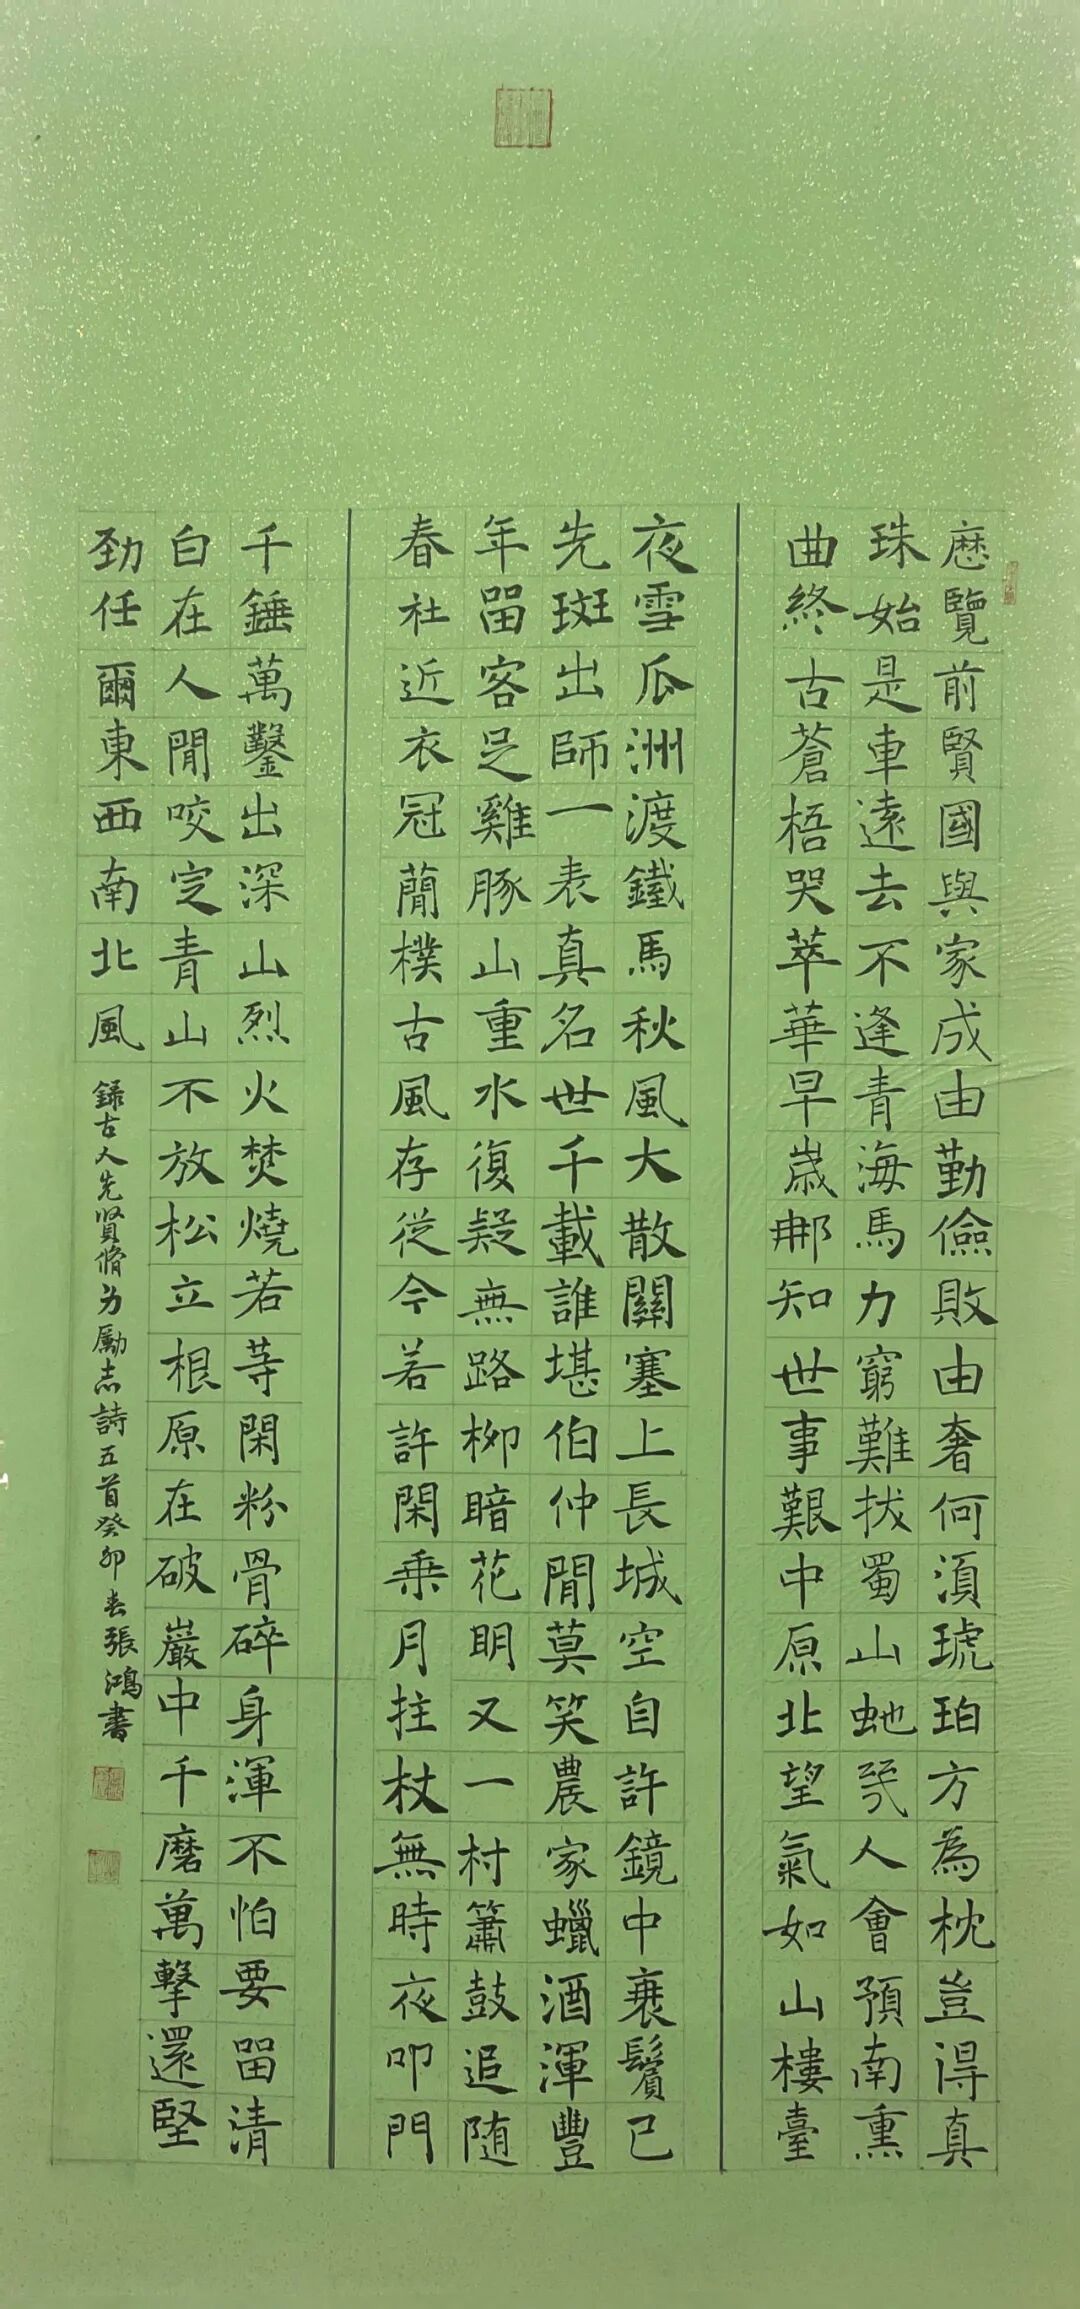 厯覽前賢國與家成由勤儉敗由奢何湏琥珀方為枕豈得真
珠始是車遠去不逢青海馬力窮難拔蜀山虵㡬人會預南熏
曲終古蒼梧哭萃華早歲郍知世事艱中原北望氣如山樓臺
夜雪瓜洲渡鐵馬秋風大散關塞上長城空自許鏡中衰鬢已
先斑出師一表真名世千載誰堪伯仲閒莫笑農家蠟酒渾豐
年畱客足雞豚山重水復疑無路柳暗花明又一村簫鼓追随
春社近衣冠蕳樸古風存從今若許閑乗月拄杖無時夜叩門
千錘萬鑿出深山烈火焚燒若䓁閑粉骨碎身渾不怕要畱清
白在人閒咬定青山不放松立根原在破巖中千磨萬擊還堅
劲任爾東西南北風
録古人先贤脩为勵志詩五首癸卯春張鴻書